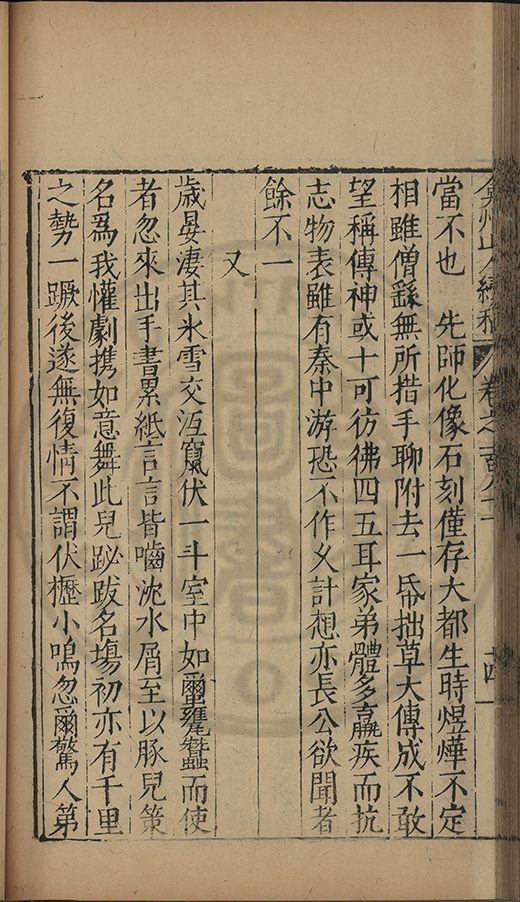 弇州山人續稿 卷之一百八十 十四
當不也　先師化像石刻僅存大都生時煜燁不定
相雖僧繇無所措手聊附去一帋拙草大傳成不敢
望稱傳神或十可彷彿四五耳家弟體多羸疾而抗
志物表雖有秦中游恐不作久計想亦長公欲聞者
餘不一
又
歲晏淒其氷雪交沍竄伏一斗室中如䘉甕蠶而使
者忽來出手書累紙言言皆嚙沈水屑至以豚兒策
名爲我懽劇携如意舞此兒跛跋名塲初亦有千里
之勢一蹶後遂無復情不謂伏櫪小鳴忽爾驚人第